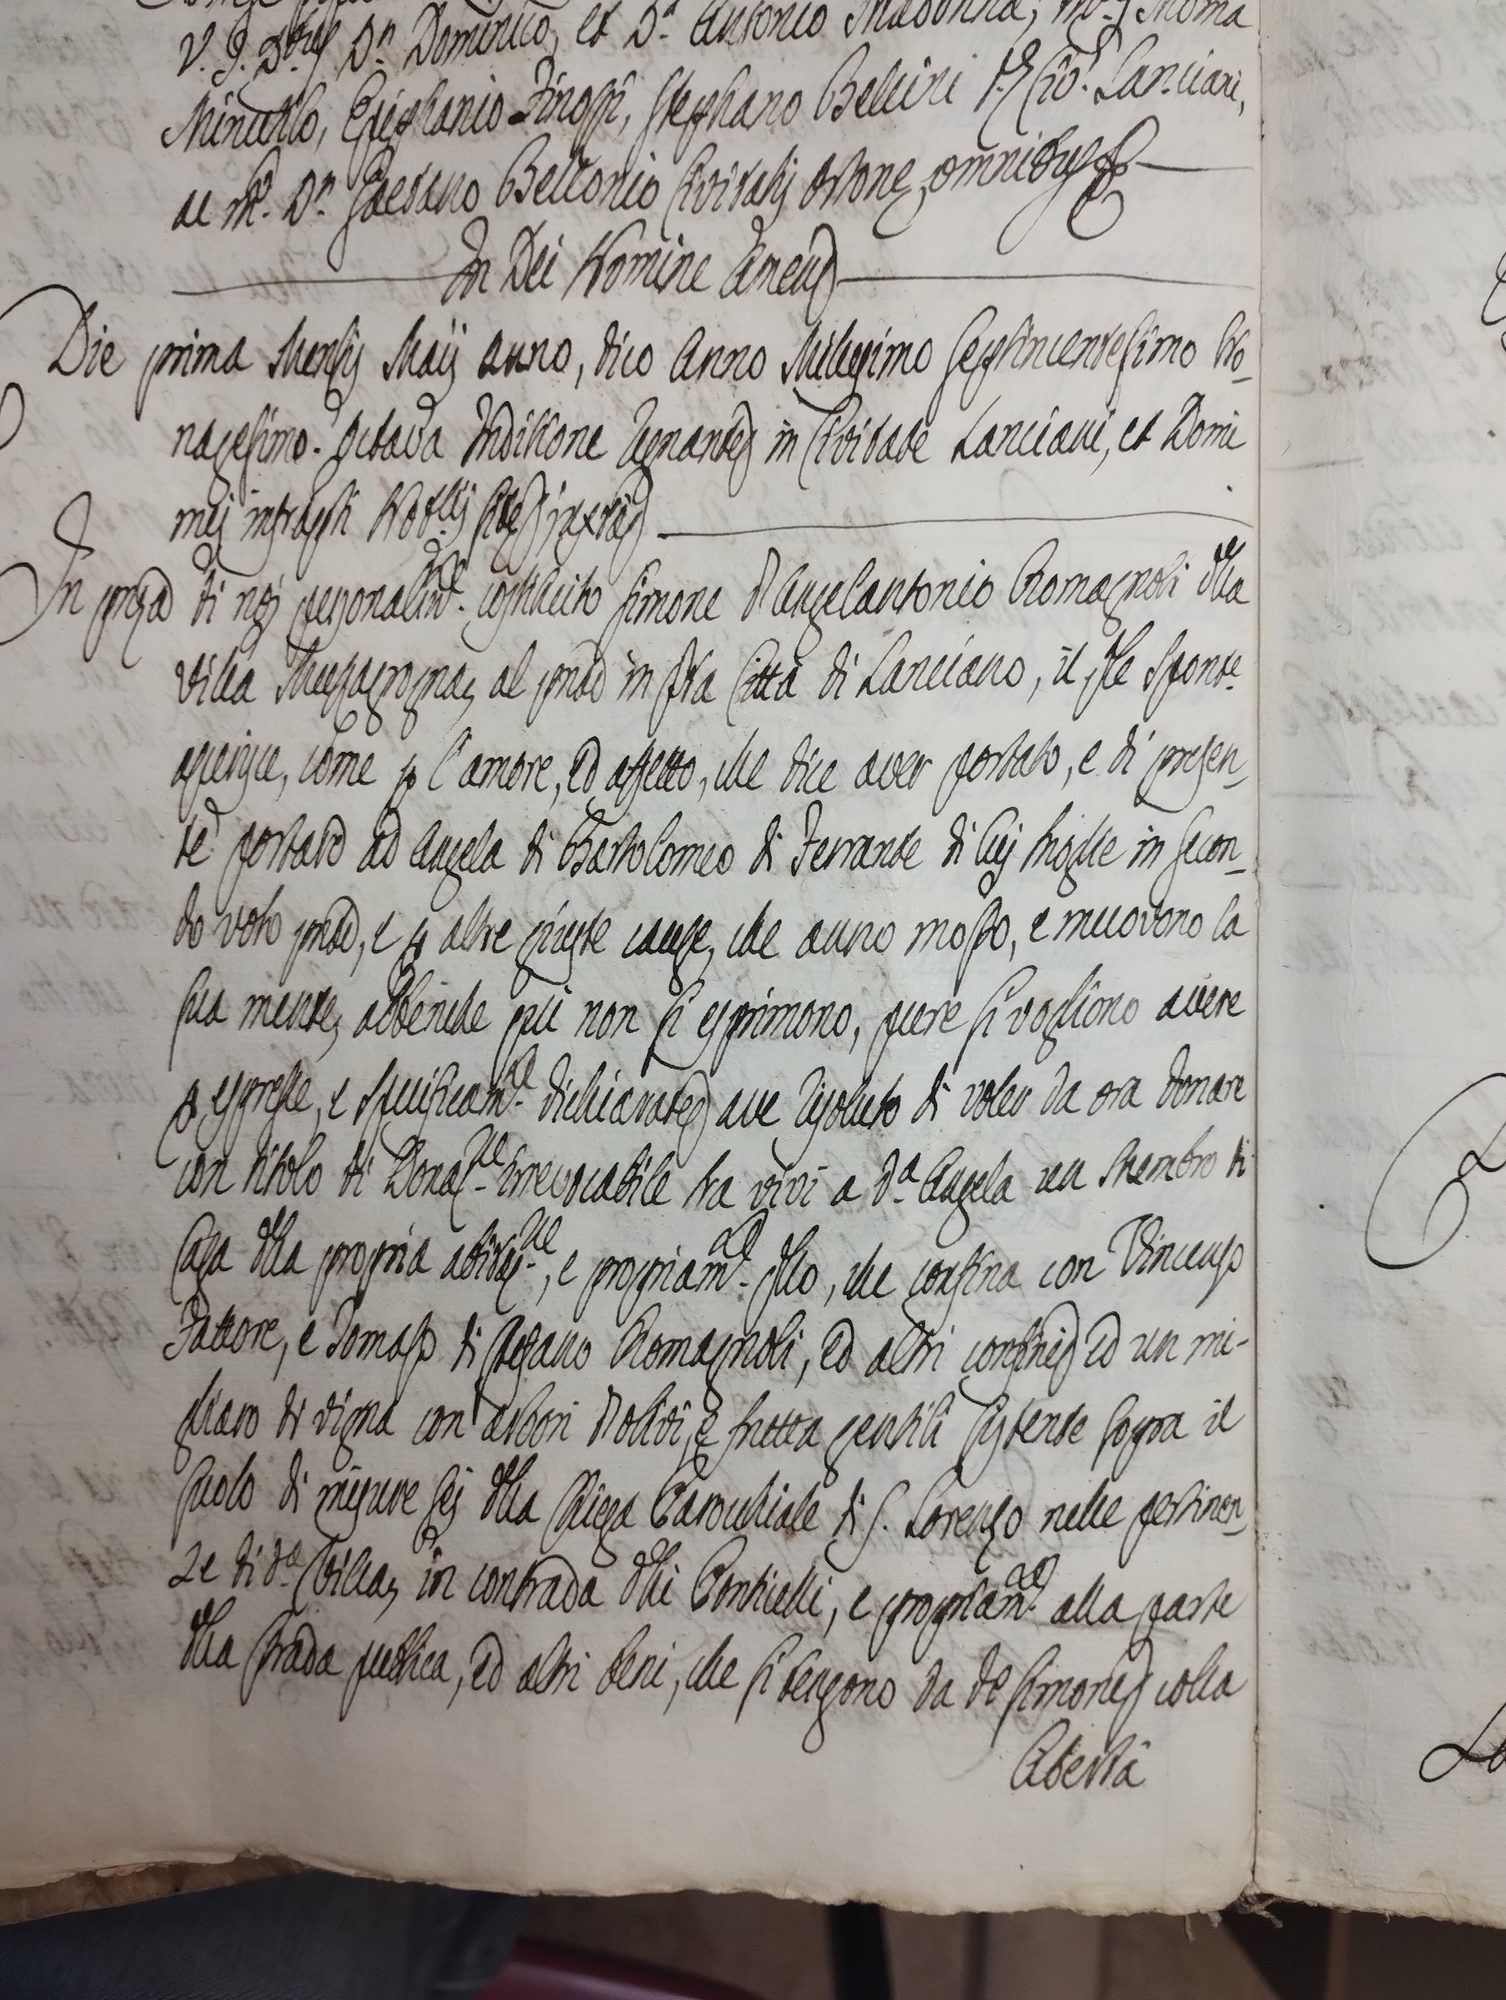 V. J. D.res D.n Dominico, et D.n Antonio Madonna, Mag.s Thoma
Minutillo, Epiphanio Finossi, Stephano Bellini p.s Civ.s Lanciani,
ac M.o D.n Gaetano Bellonio Civitatis Ortone, omnibus
In Dei Nomine Amen
Die prima Mensis Maij anno, dico Anno Millesimo Septincentesimo No-
nagesimo. Octava Indittione Regnante in Civitate Lanciani, et Domi
mei infrapti Notarij sita juxta
In pnza di noi personalm.te costituito Simone d'Angelantonio Romagnoli dlla
Villa Mezzagrogna, al pnte in qta Città di Lanciano, il qle Sponte
asserisce, come p l'amore, ed affetto, che dice aver portato, e di presen-
te portare ad Angela di Bartolomeo di Ferrante di lui Moglie in secon-
do voto pnte, e p altre giuste cause, che anno mosso, e muovono la
sua mente, abbenche qui non si esprimono, pure si vogliono avere
p espresse, e specificam.te dichiarate, ave risoluto di voler da ora donare
con titolo di Donaz.ne irrevocabile tra vivi a d.a Angela un Membro di
Casa dlla propria abitaz.ne, e propriam.te qllo, che confina con Vincenzo
Fattore, e Tomaso di Stefano Romagnoli, ed altri confini, ed un mi-
gliaro di vigna con arbori d'olivi, e frutta gentili sistente sopra il
suolo di misure sei dlla Chiesa Parochiale di S. Lorenzo nelle pertinen-
ze di d.a Villa, in contrada dlli Ponticelli, e propriam.te alla parte
dlla strada publica, ed altri beni, che si tengono da do Simone, colla
libertà